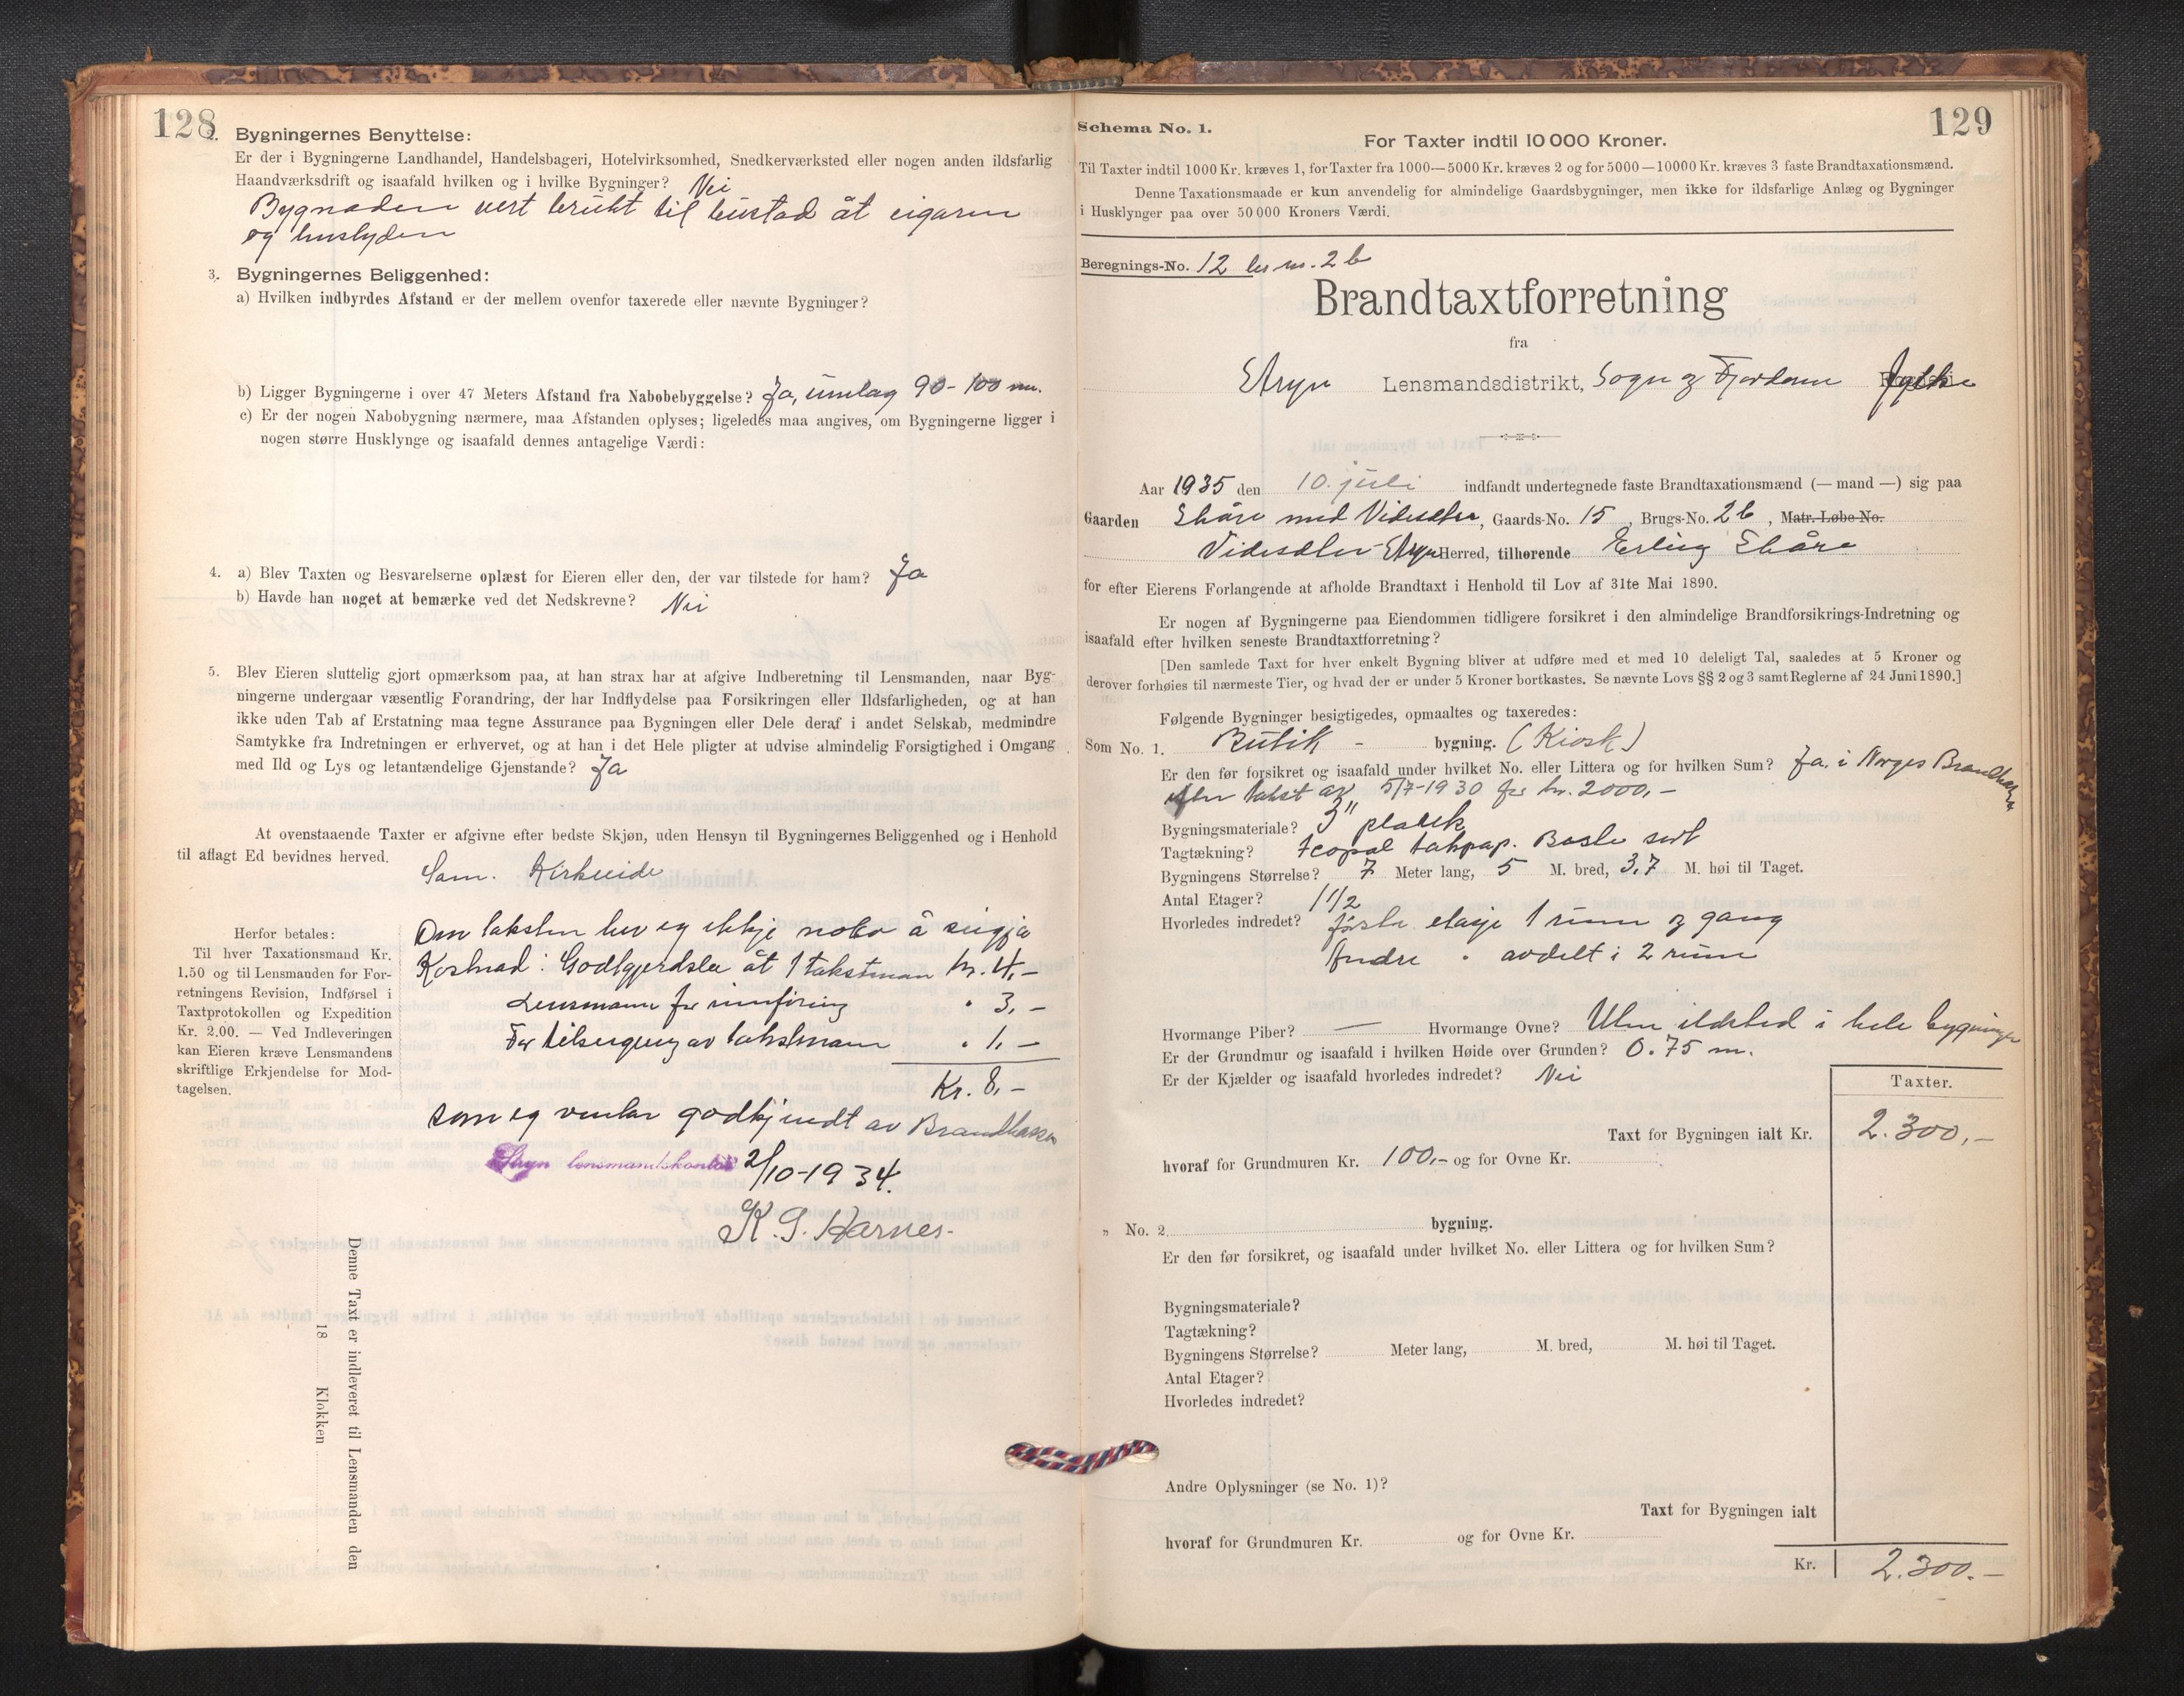 128
2. Bygningernes Benyttelse:
Er der i Bygningerne Landhandel, Handelsbageri, Hotelvirksomhed, Snedkerværksted eller nogen anden ildsfarlig
Haandværksdrift og isaafald hvilken og i hvilke Bygninger? Nei
Bygnaden vert brukt til bustad åt eigaren
og huslyden
3. Bygningernes Beliggenhed:
a) Hvilken indbyrdes Afstand er der mellem ovenfor taxerede eller nævnte Bygninger?
b) Ligger Bygningerne i over 47 Meters Afstand fra Nabobebyggelse? Ja, umlag 90-100 m.
c) Er der nogen Nabobygning nærmere, maa Afstanden oplyses; ligeledes maa angives, om Bygningerne ligger i
nogen større Husklynge og isaafald dennes antagelige Værdi:
4. a) Blev Taxten og Besvarelserne oplæst for Eieren eller den, der var tilstede for ham? Ja
b) Havde han noget at bemærke ved det Nedskrevne? Nei
5. Blev Eieren sluttelig gjort opmærksom paa, at han strax har at afgive Indberetning til Lensmanden, naar Byg-
ningerne undergaar væsentlig Forandring, der har Indflydelse paa Forsikringen eller Ildsfarligheden, og at han
ikke uden Tab af Erstatning maa tegne Assurance paa Bygningen eller Dele deraf i andet Selskab, medmindre
Samtykke fra Indretningen er erhvervet, og at han i det Hele pligter at udvise almindelig Forsigtighed i Omgang
med Ild og Lys og letantændelige Gjenstande? Ja
At ovenstaaende Taxter er afgivne efter bedste Skjøn, uden Hensyn til Bygningernes Beliggenhed og i Henhold
til aflagt Ed bevidnes herved.
Sam. Kirkeide
Herfor betales:
Til hver Taxationsmand Kr.
1.50 og til Lensmanden for For-
retningens Revision, Indførsel i
Taxtprotokollen og Expedition
Kr. 2.00. — Ved Indleveringen
kan Eieren kræve Lensmandens
skriftlige Erkjendelse for Mod-
tagelsen.
Om taksten hev eg ikkje noko å seigja
Kostnad: Godtgjerdsla åt 1 takstmann kr. 4,-
Lensmann for innføring " 3,-
For tilsegjing av takstmann " 1,-
Kr. 8,-
som eg ventar godkjendt av Brandkassa
Stryn lensmandskontor 2/10-1934.
K. J. Harnes.
Denne Taxt er indleveret til Lensmanden den
18 Klokken
129
Schema No. 1.
For Taxter indtil 10 000 Kroner.
Til Taxter indtil 1000 Kr. kræves 1, for Taxter fra 1000—5000 Kr. kræves 2 og for 5000—10000 Kr. kræves 3 faste Brandtaxationsmænd.
Denne Taxationsmaade er kun anvendelig for almindelige Gaardsbygninger, men ikke for ildsfarlige Anlæg og Bygninger
i Husklynger paa over 50 000 Kroners Værdi.
Beregnings-No. 12 br. nr. 2 b
Brandtaxtforretning
fra
Stryn Lensmandsdistrikt, Sogn og Fjordane Fylke
Aar 1935 den 10. juli indfandt undertegnede faste Brandtaxationsmænd (— mand —) sig paa
Gaarden Skåre med Videseter, Gaards-No. 15, Brugs-No. 2 b, Matr.-Løbe-No.
Videseter Stryn Herred, tilhørende Erling Skåre
for efter Eierens Forlangende at afholde Brandtaxt i Henhold til Lov af 31te Mai 1890.
Er nogen af Bygningerne paa Eiendommen tidligere forsikret i den almindelige Brandforsikrings-Indretning og
isaafald efter hvilken seneste Brandtaxtforretning?
[Den samlede Taxt for hver enkelt Bygning bliver at udføre med et med 10 deleligt Tal, saaledes at 5 Kroner og
derover forhøies til nærmeste Tier, og hvad der er under 5 Kroner bortkastes. Se nævnte Lovs §§ 2 og 3 samt Reglerne af 24 Juni 1890.]
Følgende Bygninger besigtigedes, opmaaltes og taxeredes:
Som No. 1. Butik - bygning. (Kiosk)
Er den før forsikret og isaafald under hvilket No. eller Littera og for hvilken Sum? Ja, i Norges Brandkasse
etter takst av 5/7-1930 for kr. 2000,-
Bygningsmateriale? 3" plank
Tagtækning? Icopal takpap.
Bygningens Størrelse? 7 Meter lang, 5 M. bred, 3,7 M. høi til Taget.
Antal Etager? 1 1/2
Hvorledes indredet? første etasje 1 rum og gang
Andre " avdelt i 2 rum
Hvormange Piber? — Hvormange Ovne? Uten ildsted i hele bygningen
Er der Grundmur og isaafald i hvilken Høide over Grunden? 0.75 m.
Er der Kjælder og isaafald hvorledes indredet? Nei
Taxter.
Taxt for Bygningen ialt Kr. 2.300,-
hvoraf for Grundmuren Kr. 100,- og for Ovne Kr.
" No. 2. bygning.
Er den før forsikret, og isaafald under hvilket No. eller Littera og for hvilken Sum?
Bygningsmateriale?
Tagtækning?
Bygningens Størrelse? Meter lang, M. bred, M. høi til Taget.
Antal Etager?
Hvorledes indredet?
Andre Oplysninger (se No. 1)?
Taxt for Bygningen ialt
hvoraf for Grundmuren Kr. og for Ovne Kr.
Kr. 2.300.-